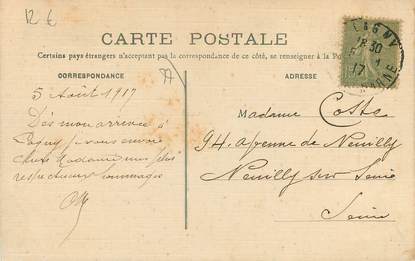 12 €
CARTE POSTALE
Certains pays étrangers n'acceptant pas la correspondance de ce côté, se renseigner à la Po
CORRESPONDANCE
ADRESSE
LAGNY
18 30
17
MARNE
5 Août 1917
Dès mon arrivée à
Lagny je vous envoie
chère Madame mes plus
respectueux hommages
Madame Coste
94 Avenue de Neuilly
Neuilly sur Seine
Seine